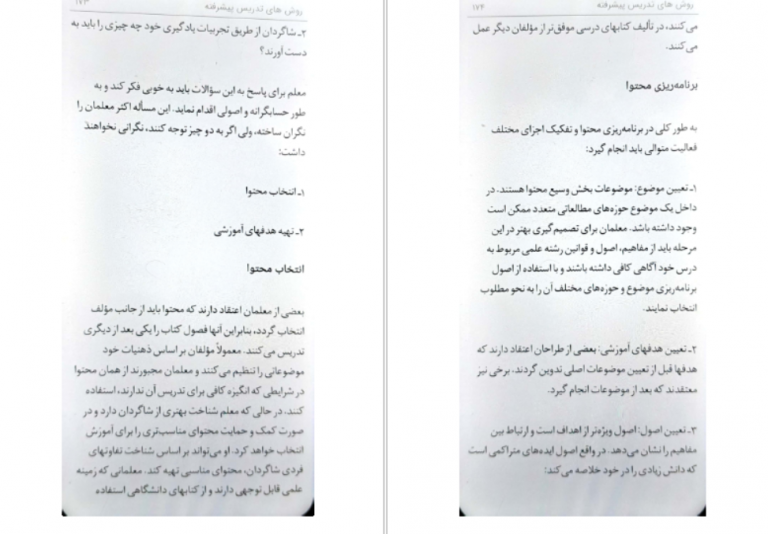 روش های تدریس پیشرفته ۱۷۳
۲ـ شاگردان از طریق تجربیات یادگیری خود چه چیزی را باید به
دست آورند؟
معلم برای پاسخ به این سؤالات باید به خوبی فکر کند و به
طور حسابگرانه و اصولی اقدام نماید. این مسأله اکثر معلمان را
نگران ساخته، ولی اگر به دو چیز توجه کنند، نگرانی نخواهند
داشت:
۱ـ انتخاب محتوا
۲ـ تهیه هدفهای آموزشی
انتخاب محتوا
بعضی از معلمان اعتقاد دارند که محتوا باید از جانب مؤلف
انتخاب گردد، بنابراین آنها فصول کتاب را یکی بعد از دیگری
تدریس می‌کنند. معمولاً مؤلفان بر اساس ذهنیات خود
موضوعاتی را تنظیم می‌کنند و معلمان مجبورند از همان محتوا
در شرایطی که انگیزه کافی برای تدریس آن ندارند، استفاده
کنند. در حالی که معلم شناخت بهتری از شاگردان دارد و در
صورت کمک و حمایت محتوای مناسب‌تری را برای آموزش
انتخاب خواهد کرد. او می‌تواند بر اساس شناخت تفاوتهای
فردی شاگردان، محتوای مناسبی تهیه کند. معلمانی که زمینه
علمی قابل توجهی دارند و از کتابهای دانشگاهی استفاده
۱۷۴ روش های تدریس پیشرفته
می‌کنند، در تألیف کتابهای درسی موفق‌تر از مؤلفان دیگر عمل
می‌کنند.
برنامه‌ریزی محتوا
به طور کلی در برنامه‌ریزی محتوا و تفکیک اجزای مختلف
فعالیت متوالی باید انجام گیرد:
۱ـ تعیین موضوع: موضوعات بخش وسیع محتوا هستند. در
داخل یک موضوع حوزه‌های مطالعاتی متعدد ممکن است
وجود داشته باشد. معلمان برای تصمیم‌گیری بهتر در این
مرحله باید از مفاهیم، اصول و قوانین رشته علمی مربوط به
درس خود آگاهی کافی داشته باشند و با استفاده از اصول
برنامه‌ریزی موضوع و حوزه‌های مختلف آن را به نحو مطلوب
انتخاب نمایند.
۲ـ تعیین هدفهای آموزشی: بعضی از طراحان اعتقاد دارند که
هدفها قبل از تعیین موضوعات اصلی تدوین گردند. برخی نیز
معتقدند که بعد از موضوعات انجام گیرد.
۳ـ تعیین اصول: اصول ویژه‌تر از اهداف است و ارتباط بین
مفاهیم را نشان می‌دهد. در واقع اصول ایده‌های متراکمی است
که دانش زیادی را در خود خلاصه می‌کند: